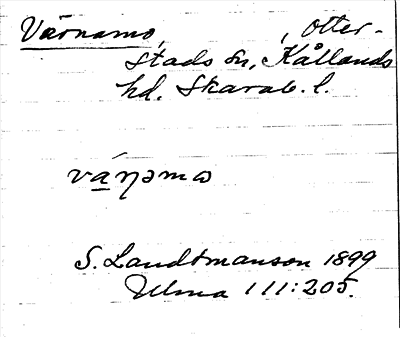 Värnamo, , Otter-
stads sn, Kållands
hd. Skarab. l.
váṉəmɷ
S. Landtmanson 1899
Ulma 111:205.